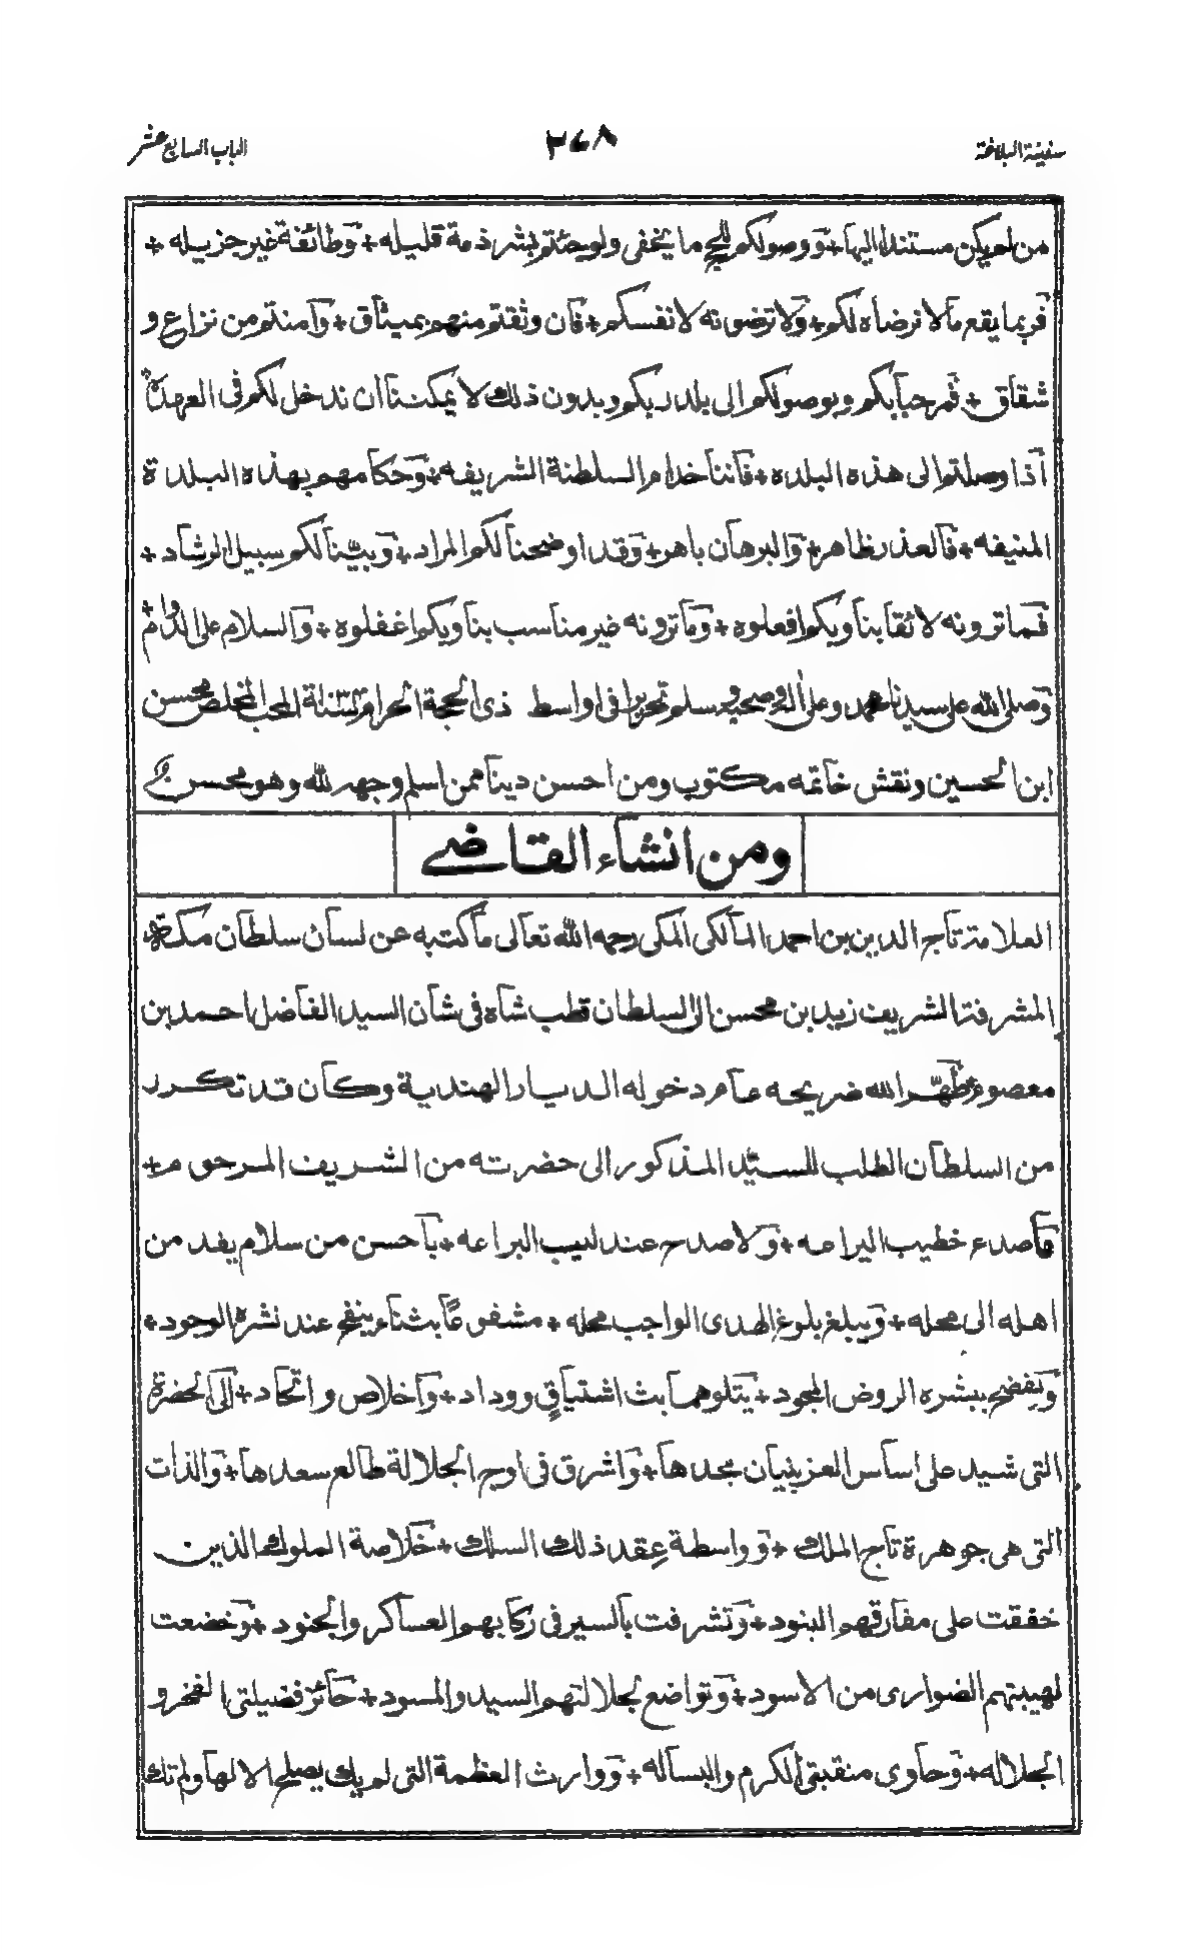 سفينة البلاغة
٢٤٨
الباب السابع عشر
من لم يكن مستندا اليها + ووصولكم للحج ما يخفى ولو جئتم بشرذمة قليله + وطائفة غير جزيله +
فربما يقع مالا نرضاه لكم + ولا ترضونه لانفسكم + فان وثقتم منهم بميثاق + وآمنتم من نزاع و
شقاق + فمرحبا بكم وبوصولكم الى بلد ربكم وبدون ذلك لا يمكننا ان ندخل لكم فى العهدة
اذا وصلتم الى هذه البلده + فاننا خدام السلطنة الشريفه + وحكامهم بهذه البلدة
المنيفه + فالعذر ظاهر + والبرهان باهر + وقد اوضحنا لكم المراد + وبيّنا لكم سبيل الرشاد +
فما ترونه لائقا بنا وبكم افعلوه + وما ترونه غير مناسب بنا وبكم اغفلوه + والسلام على الدوام +
وصلى الله على سيدنا محمد وعلى آله وصحبه وسلم تحريرا فى اواسط ذى الحجة الحرام سنة المحب المخلص محسن
ابن الحسين ونقش خاتمه مكتوب ومن احسن دينا ممن اسلم وجهه لله وهو محسن
ومن انشاء القاضے
العلامة تاج الدين بن احمد المالكى المكى رحمه الله تعالى ما كتبه عن لسان سلطان مكة
المشرفة الشريف زيد بن محسن الى السلطان قطب شاه فى شان السيد الفاضل احمد بن
معصوم طهّر الله ضريحه عام دخوله الديار الهندية وكان قد تكرر
من السلطان الطلب للسيّد المذكور الى حضرته من الشريف المرحوم +
ماصدع خطيب اليراعه + ولا صدح عندليب البراعه + باحسن من سلام يفد من
اهله الى محله + ويبلغ بلوغ الهدى الواجب محله + مشفوعًا بثناء ينفح عند نشره الوجود +
ويفضح ببشره الروض المجود + يتلوهما بث اشتياقٍ ووداد + واخلاص واتحاد + الى الحضرة
التى شيد على اساس العز بنيان مجدها + واشرق فى اوج الجلالة طالع سعدها + والذات
التى هى جوهرة تاج الملك + وواسطة عِقد ذلك السلك + خلاصة الملوك الذين
خفقت على مفارقهم البنود + وتشرفت بالسير فى ركابهم العساكر والجنود + وخضعت
لهيبتهم الضوارى من الاسود + وتواضع لجلالتهم السيد والمسود + حائز فضيلتى الفخر و
الجلاله + وحاوى منقبتى الكرم والبساله + ووارث العظمة التى لم يك يصلح الا لها ولم تك